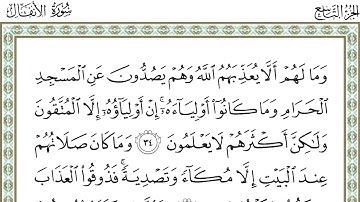 سُورَةُ الأَنفَالِ
الجُزْءُ التَّاسِعُ
وَمَا لَهُمْ أَلَّا يُعَذِّبَهُمُ اللَّهُ وَهُمْ يَصُدُّونَ عَنِ الْمَسْجِدِ
الْحَرَامِ وَمَا كَانُوٓا۟ أَوْلِيَآءَهُۥٓ ۚ إِنْ أَوْلِيَآؤُهُۥٓ إِلَّا الْمُتَّقُونَ
وَلَٰكِنَّ أَكْثَرَهُمْ لَا يَعْلَمُونَ ٣٤ وَمَا كَانَ صَلَاتُهُمْ
عِندَ الْبَيْتِ إِلَّا مُكَآءً وَتَصْدِيَةً ۚ فَذُوقُوا۟ الْعَذَابَ